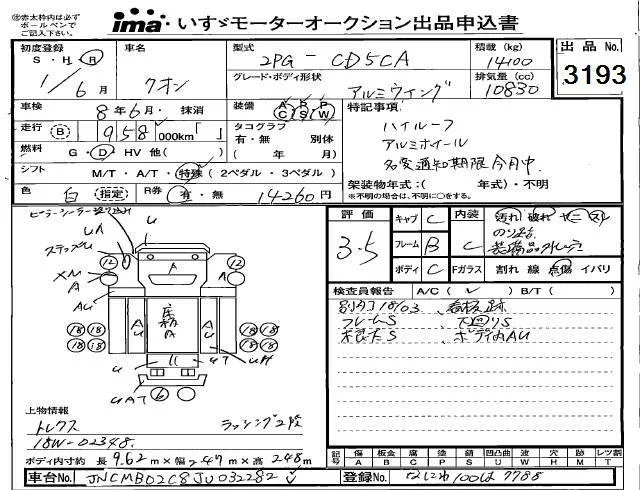 ㊟赤太枠内は必ず
ボールペンで
ご記入下さい。
ima いすゞモーターオークション出品申込書
初度登録
S・H・R
1/6月
車名
クオン
型式
2PG-CD5CA
積載(kg)
14100
出品No.
3193
グレード・ボディ形状
アルミウイング
排気量(cc)
10830
車検
8年6月・抹消
装備
A P P
C S W
特記事項
ハイルーフ
アルミホイール
名変通知期限今月中
走行 B 958,000km「 」
タコグラフ
有・無 別体
( 年 月)
燃料
G・D・HV 他( )
シフト
M/T・A/T・特殊(2ペダル・3ペダル)
架装物年式:( 年式)・不明
※不明の場合は、不明に○をする。
色 白 (指定)
R券 有・無 14260円
評価
3.5
キャブ C
フレーム B
ボディ C
内装
C
汚れ 破れ ヤニ スレ
装備品外し穴
Fガラス 割れ 線 点傷 イバリ
検査員報告 A/C( ✓ ) B/T( )
別タコ18/03、看板跡
フレームS、下廻りS
ボディ内AU
ステップU
UA
U
12
12
XM
A
A
A
AU
AU
AU
床
A
18 18
18 18
18 18
18 18
U
U
UA
UAT
6
上物情報
トレクス
18W-02348.
ラッシング2段
ボディ内寸約 長 9.62m×幅 2.47m×高 248m
記号
傷 A
板金 B
腐 C
塗 P
錆 S
凹凸曲 U
波 W
穴 H
跡 M
レツ割 T
車台No.
JNCMB02C8JU032282
登録No.
なにわ100は7788